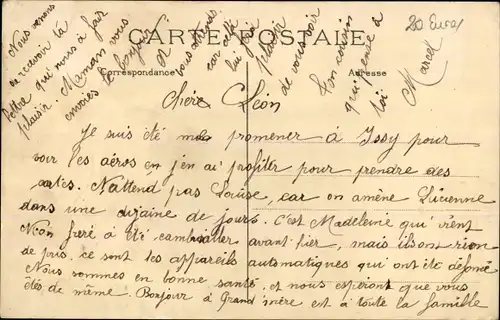 20 Euros
CARTE POSTALE
Correspondance
Adresse
Chère Léon
Je suis été me promener à Issy pour
voir les aéros en j'en ai profiter pour prendre des
cartes. N'attend pas Louise, car on amène Lucienne
dans une dizaine de jours. C'est Madeleine qui vient
Mon frère à été cambrioller avant hier, mais ils on rien
de pris, ce sont les appareils automatiques qui ont été défoncé
Nous sommes en bonne santé et nous espéront que vous
êtes de même. Bonjour à Grand'mère est à toute la famille
Nous venons
de recevoir ta
lettre qui nous à fait
plaisir. Maman vous
envoies le bonjour
car cela
lui fait
plaisir
de vous voir
Ton cousin
qui pense à
toi
Marcel